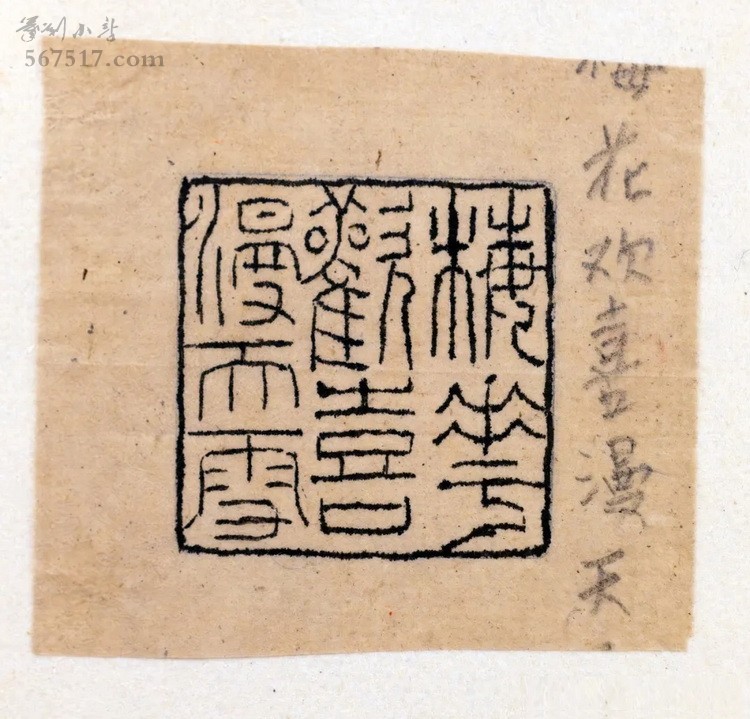 篆刻小站
567517.com
梅花欢喜漫天
梅華
歡喜
漫天雪